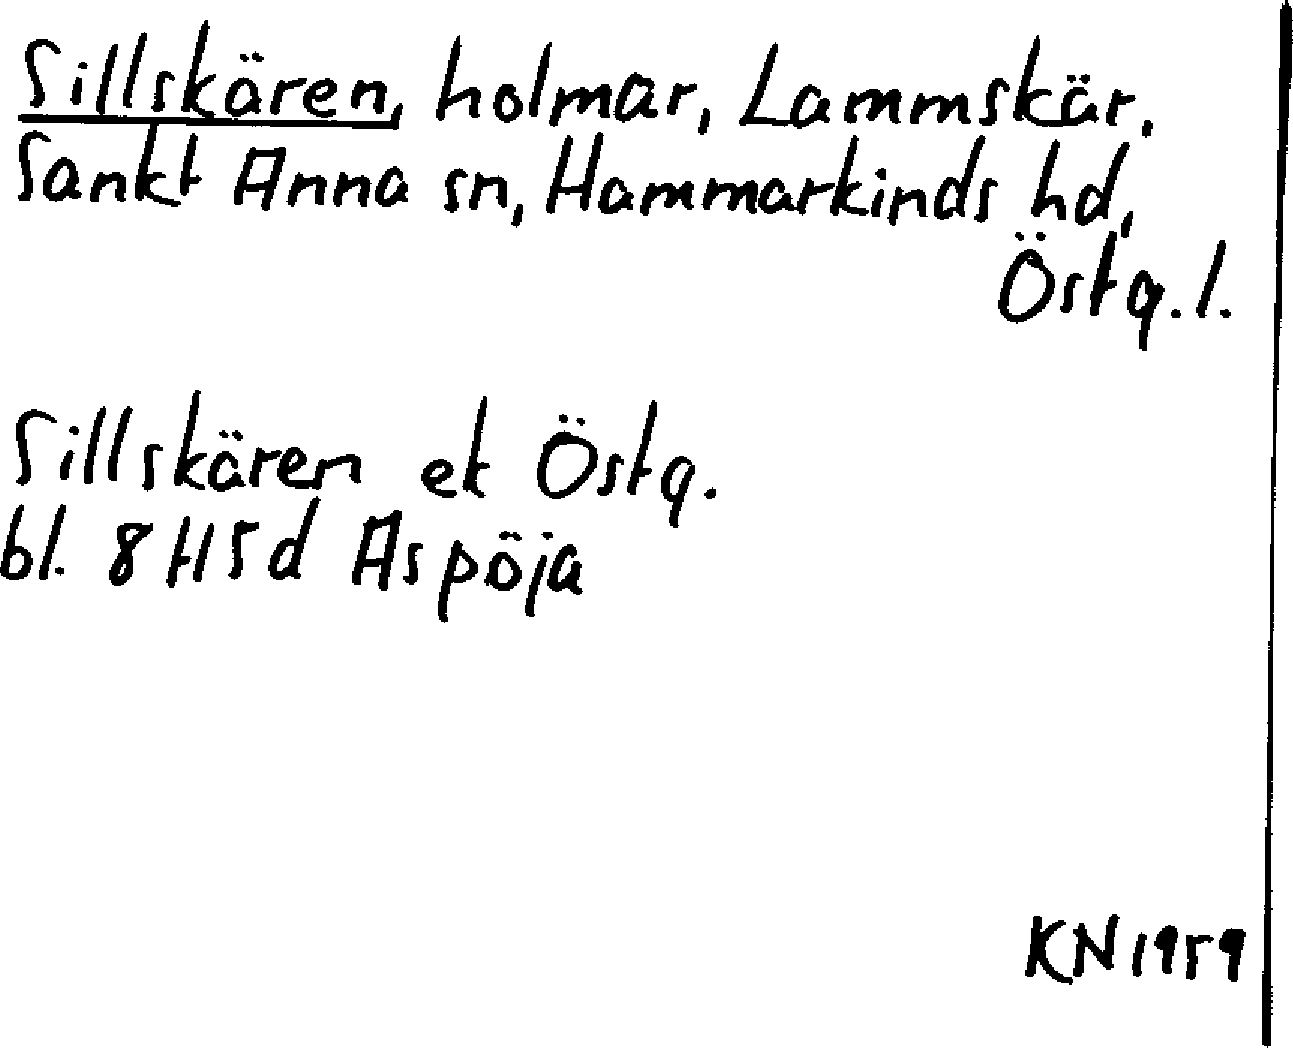 Sillskären, holmar, Lammskär,
Sankt Anna sn, Hammarkinds hd,
Östg. l.
Sillskären ek Östg.
bl. 8 H5d Aspöja
KN 1959